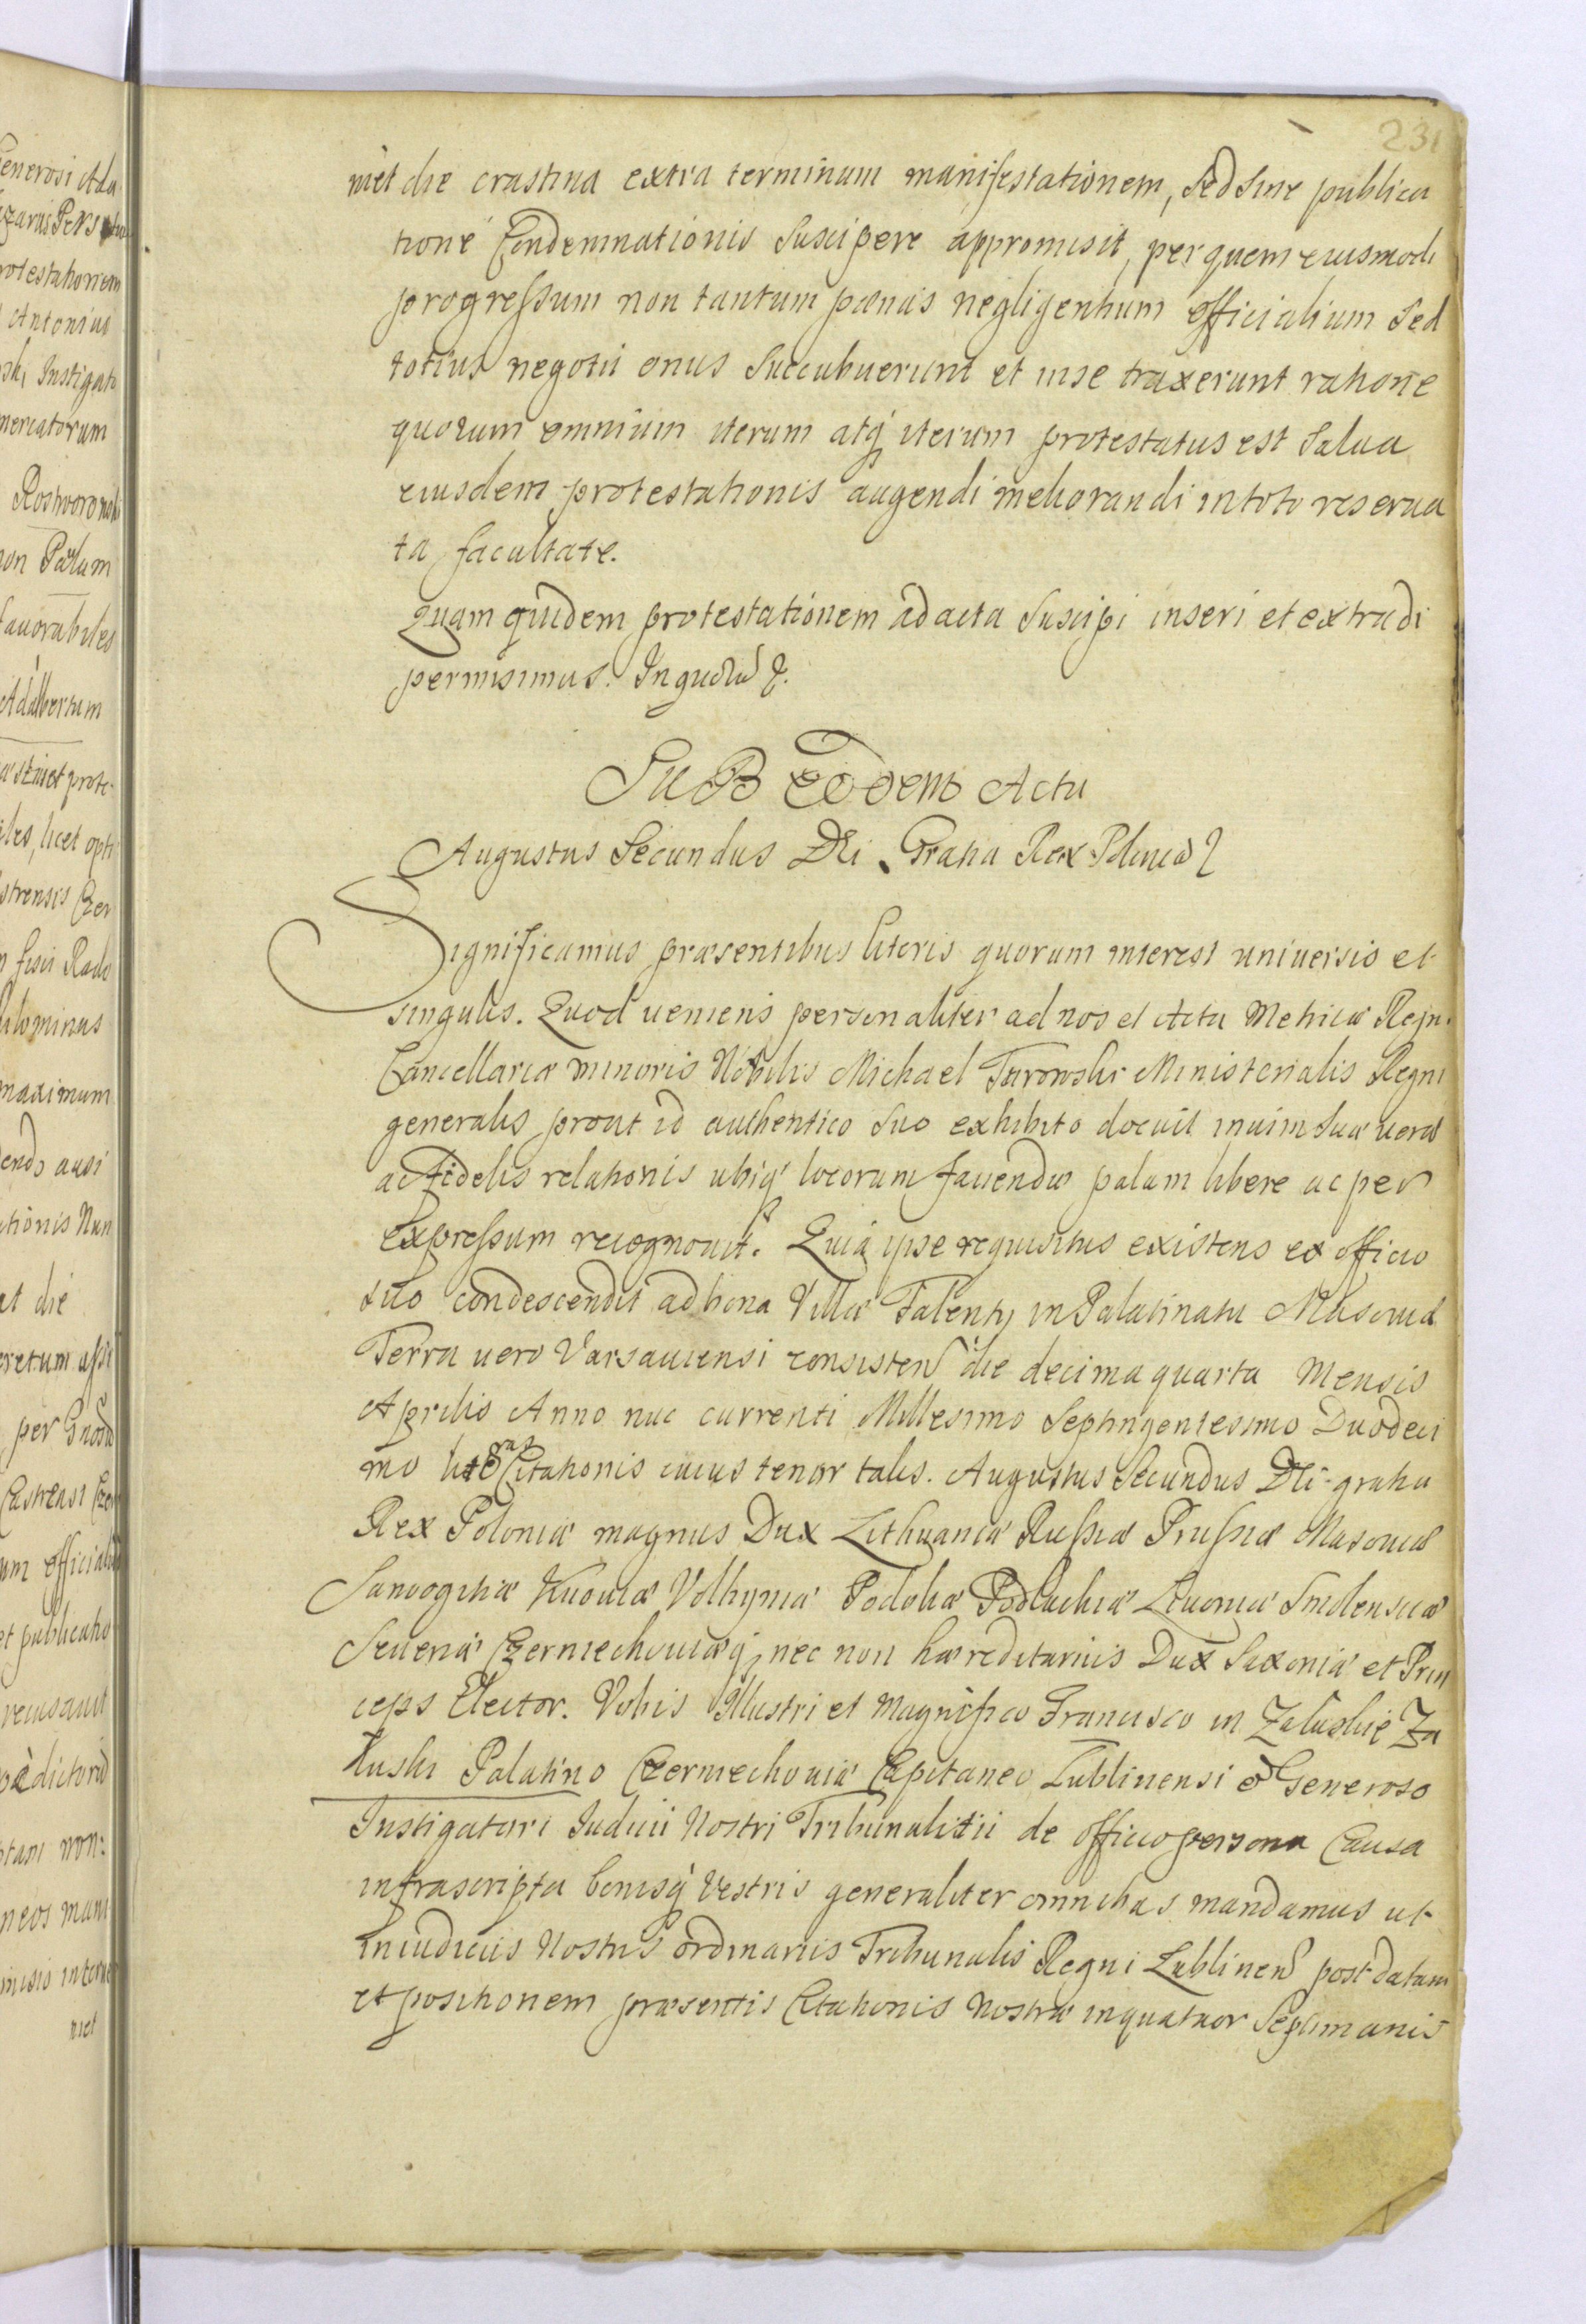 231
met die crastina extra terminum manifestationem, Sed Sine publica
tione Condemnationis Suscipere appromisit, per quem eiusmodi
progressum non tantum pænas negligentium officialium Sed
totius negotii onus Succubuerunt et in se traxerunt ratione
quorum omnium iterum atq iterum protestatus est Salva
eiusdem protestationis augendi meliorandi in toto reserva
ta facultate.
Quam quidem protestationem ad acta Suscipi inseri et extradi
permisimus. In quorū &.
SuB Eodem Actu
Augustus Secundus DEi Gratia Rex Poloniæ &
Significamus præsentibus literis quorum interest universis et
singulis. Quod veniens personaliter ad nos et Acta Metricæ Regn.
Cancellariæ minoris Nobilis Michael Turowski Ministerialis Regni
generalis prout id authentico Suo exhibito docuit in vim Suæ veræ
ac fidelis relationis ubiq locorum faciendæ palam libere ac per
expressum recognovit. Quia ipse requisitus existens ex officio
Suo condescendit ad bona Villæ Falenty in Palatinatu Masoviæ
Terra vero Varsaviensi consisten die decima quarta Mensis
Aprilis Anno nuc currenti Millesimo Septingentesimo Duodeci
mo literas Citationis cuius tenor talis. Augustus Secundus DEi gratia
Rex Poloniæ magnus Dux Lithuaniæ Russiæ Prussiæ Masoviæ
Samogitiæ Kijoviæ Volhyniæ Podoliæ Podlachiæ Livoniæ Smolensciæ
Severiæ Czerniechoviæq, nec non hæreditarius Dux Saxoniæ et Prin
ceps Elector. Vobis Illustri et Magnifico Francisco in Załuskie Za
łuski Palatino Czerniechoviæ Capitaneo Lublinensi & Generoso
Instigatori Iudicii Nostri Tribunalitii de officio persona Causa
infrascripta bonisq Vestris generaliter omnibus mandamus ut
in iudiciis Nostris ordinariis Tribunalis Regni Lublinen post datam
et positionem præsentis Citationis Nostræ in quatuor Septimanis